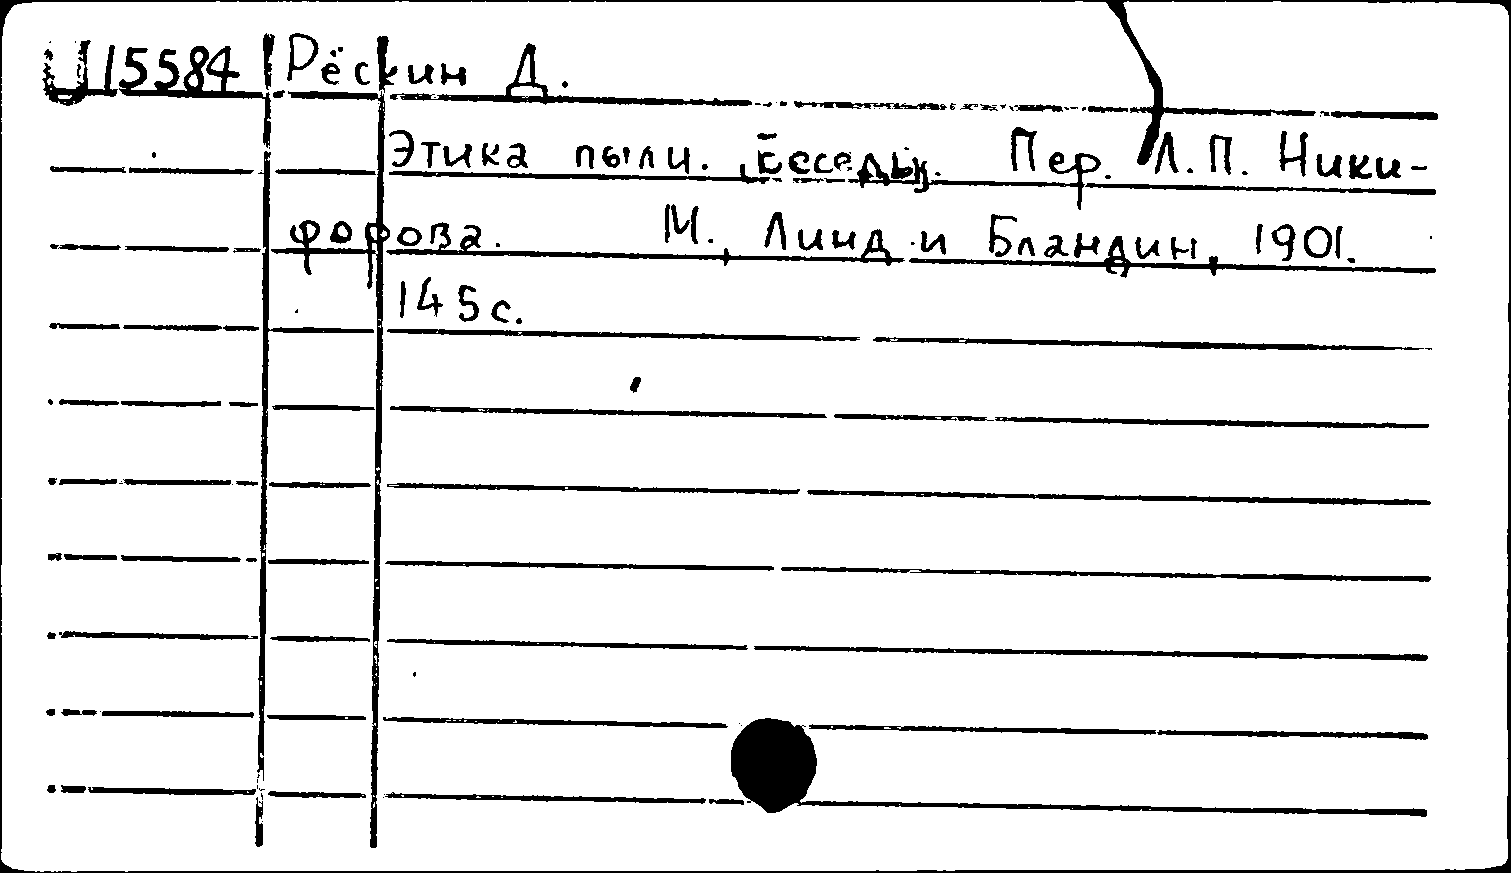 U 15584 Рёскин Д.
Этика пыли. Беседы. Пер. Л.П. Ники-
форова. М., Линд и Бландин, 1901.
145с.